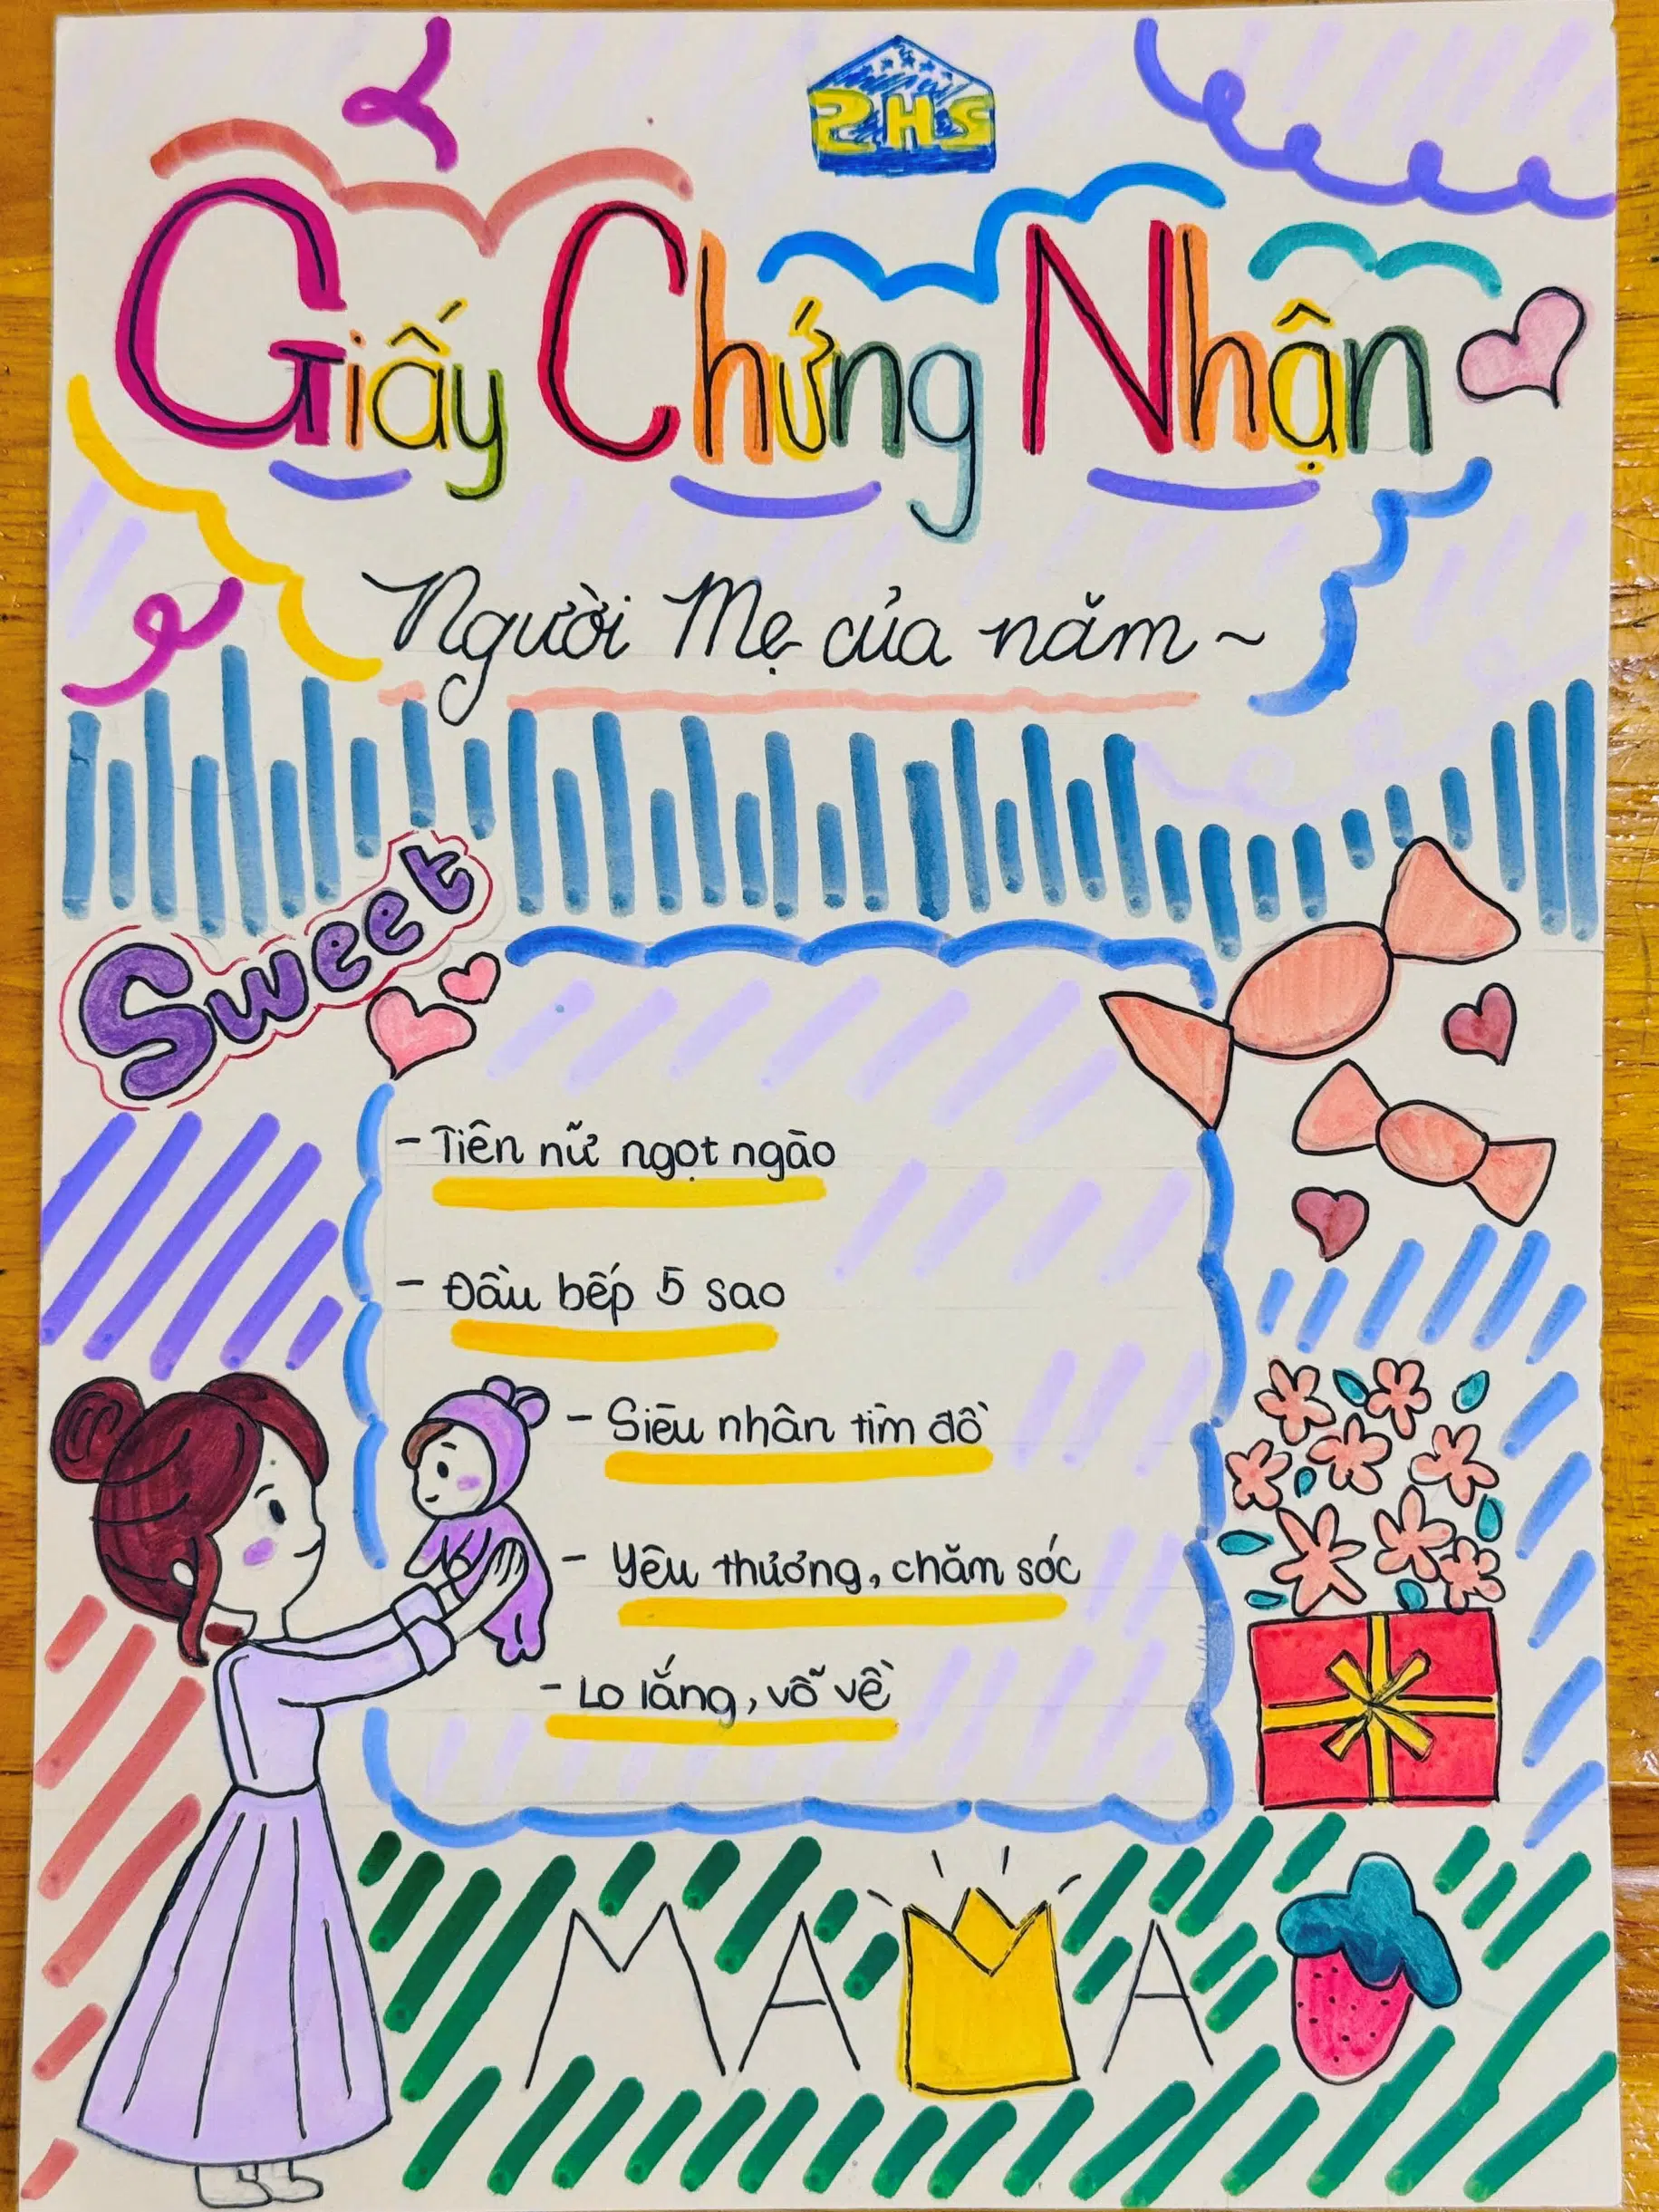 SHS
Giấy Chứng Nhận
Người Mẹ của năm ~
Sweet
- Tiên nữ ngọt ngào
- Đầu bếp 5 sao
- Siêu nhân tìm đồ
- Yêu thương, chăm sóc
- Lo lắng, vỗ về
MAMA